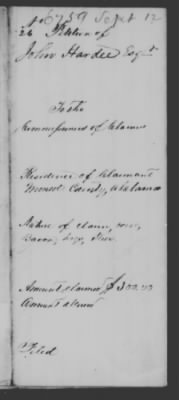 26 Petition of
John Hardee Esqr
To the
Commissioners of Claims
Residence of Claimant
County, Alabama
Nature of claim, corn,
Bacon,
Amount claimed, $300.00
Amount allowed
Filed